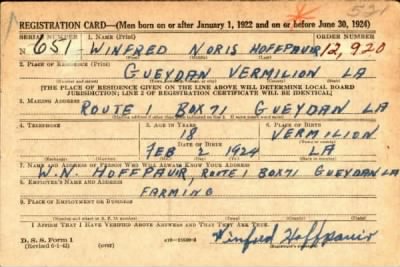 REGISTRATION CARD—(Men born on or after January 1, 1922 and on or before June 30, 1924)
SERIAL NUMBER 1. NAME (Print) ORDER NUMBER
N 651 WINFRED NORIS HOFFPAUIR 12,920
2. PLACE OF RESIDENCE (Print)
GUEYDAN VERMILION LA
[THE PLACE OF RESIDENCE GIVEN ON THE LINE ABOVE WILL DETERMINE LOCAL BOARD
JURISDICTION; LINE 2 OF REGISTRATION CERTIFICATE WILL BE IDENTICAL]
3. MAILING ADDRESS
ROUTE 1 BOX 71 GUEYDAN LA
4. TELEPHONE 5. AGE IN YEARS 6. PLACE OF BIRTH
18 VERMILION
DATE OF BIRTH
FEB 2 1924 LA
7. NAME AND ADDRESS OF PERSON WHO WILL ALWAYS KNOW YOUR ADDRESS
W.N. HOFFPAUIR, ROUTE 1 BOX 71 GUEYDAN LA
8. EMPLOYER'S NAME AND ADDRESS
FARMING
9. PLACE OF EMPLOYMENT OR BUSINESS
I AFFIRM THAT I HAVE VERIFIED ABOVE ANSWERS AND THAT THEY ARE TRUE.
D. S. S. Form 1
(Revised 6-1-42) (over)
Winfred Hoffpauir